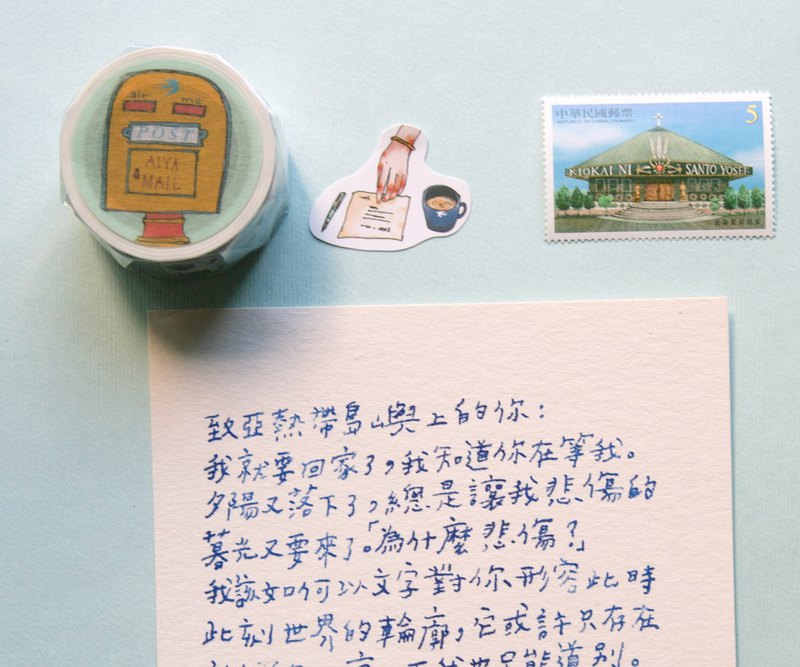 air me
POST
AIYA
MAIL
中華民國郵票
REPUBLIC OF CHINA (TAIWAN)
5
KIOKAI NI SANTO YOSEF
致亞熱帶島嶼上的你：
我就要回家了，我知道你在等我。
夕陽又落下了，總是讓我悲傷的
暮光又要來了。「為什麼悲傷？」
我該如何以文字對你形容此時
此刻世界的輪廓，它或許只存在